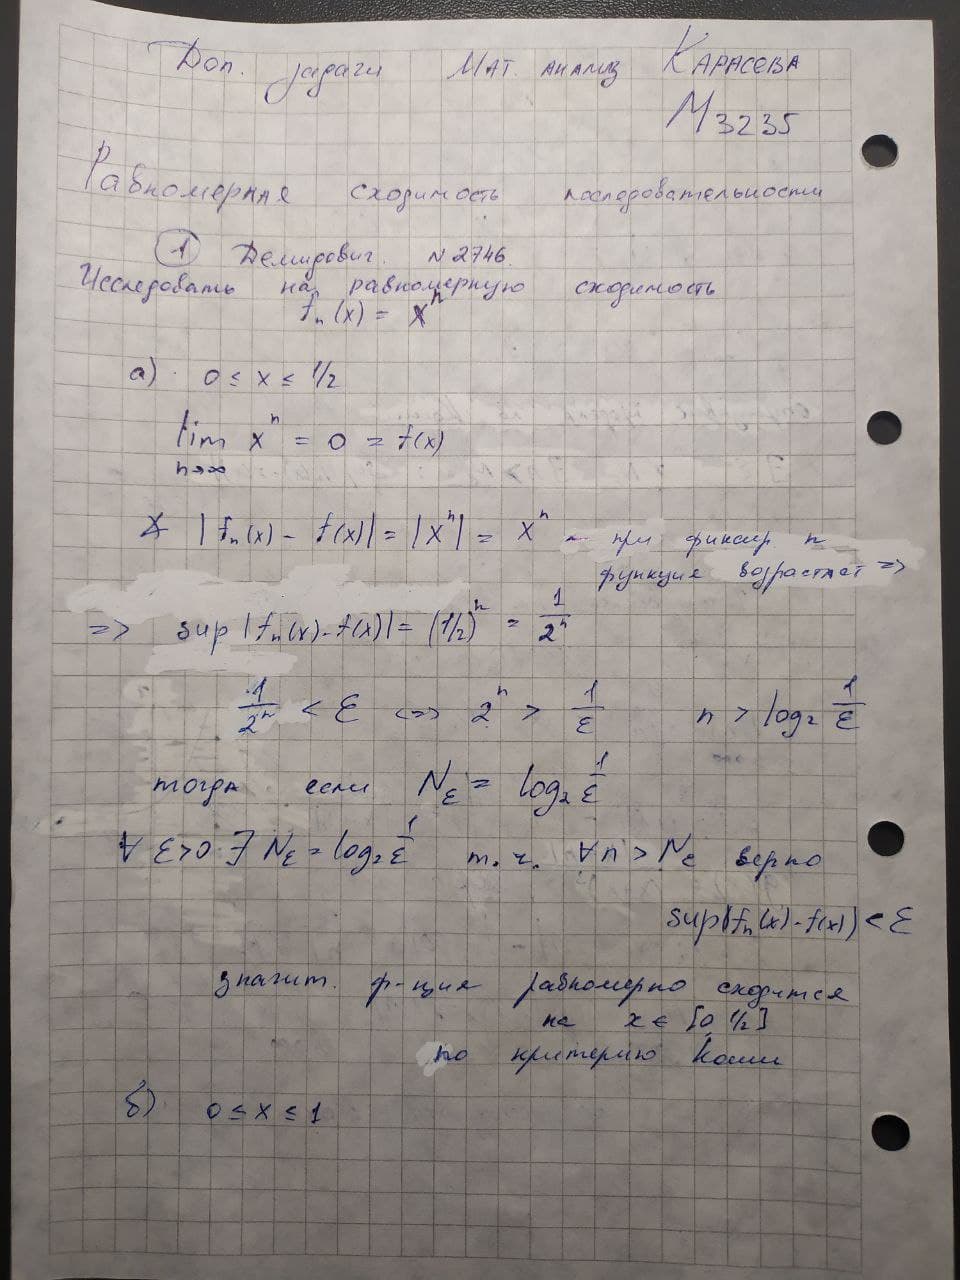 Доп. задачи Мат. анализ Карасева
М3235
Равномерная сходимость последовательности
① Демидович. N2746.
Исследовать на равномерную сходимость
fₙ(x) = xⁿ
а) 0 ≤ x ≤ 1/2
lim xⁿ = 0 = f(x)
n→∞
∡ |fₙ(x) - f(x)| = |xⁿ| = xⁿ - при фиксир n
функция возрастает =>
=> sup |fₙ(x) - f(x)| = (1/2)ⁿ = 1/2ⁿ
1/2ⁿ < ε <=> 2ⁿ > 1/ε n > log₂ 1/ε
тогда если N_ε = log₂ 1/ε
∀ ε>0 ∃ N_ε = log₂ 1/ε т.ч. ∀n > N_ε верно
sup|fₙ(x) - f(x)| < ε
значит. ф-ция равномерно сходится
на x ∈ [0 1/2]
по критерию Коши
б) 0 ≤ x ≤ 1